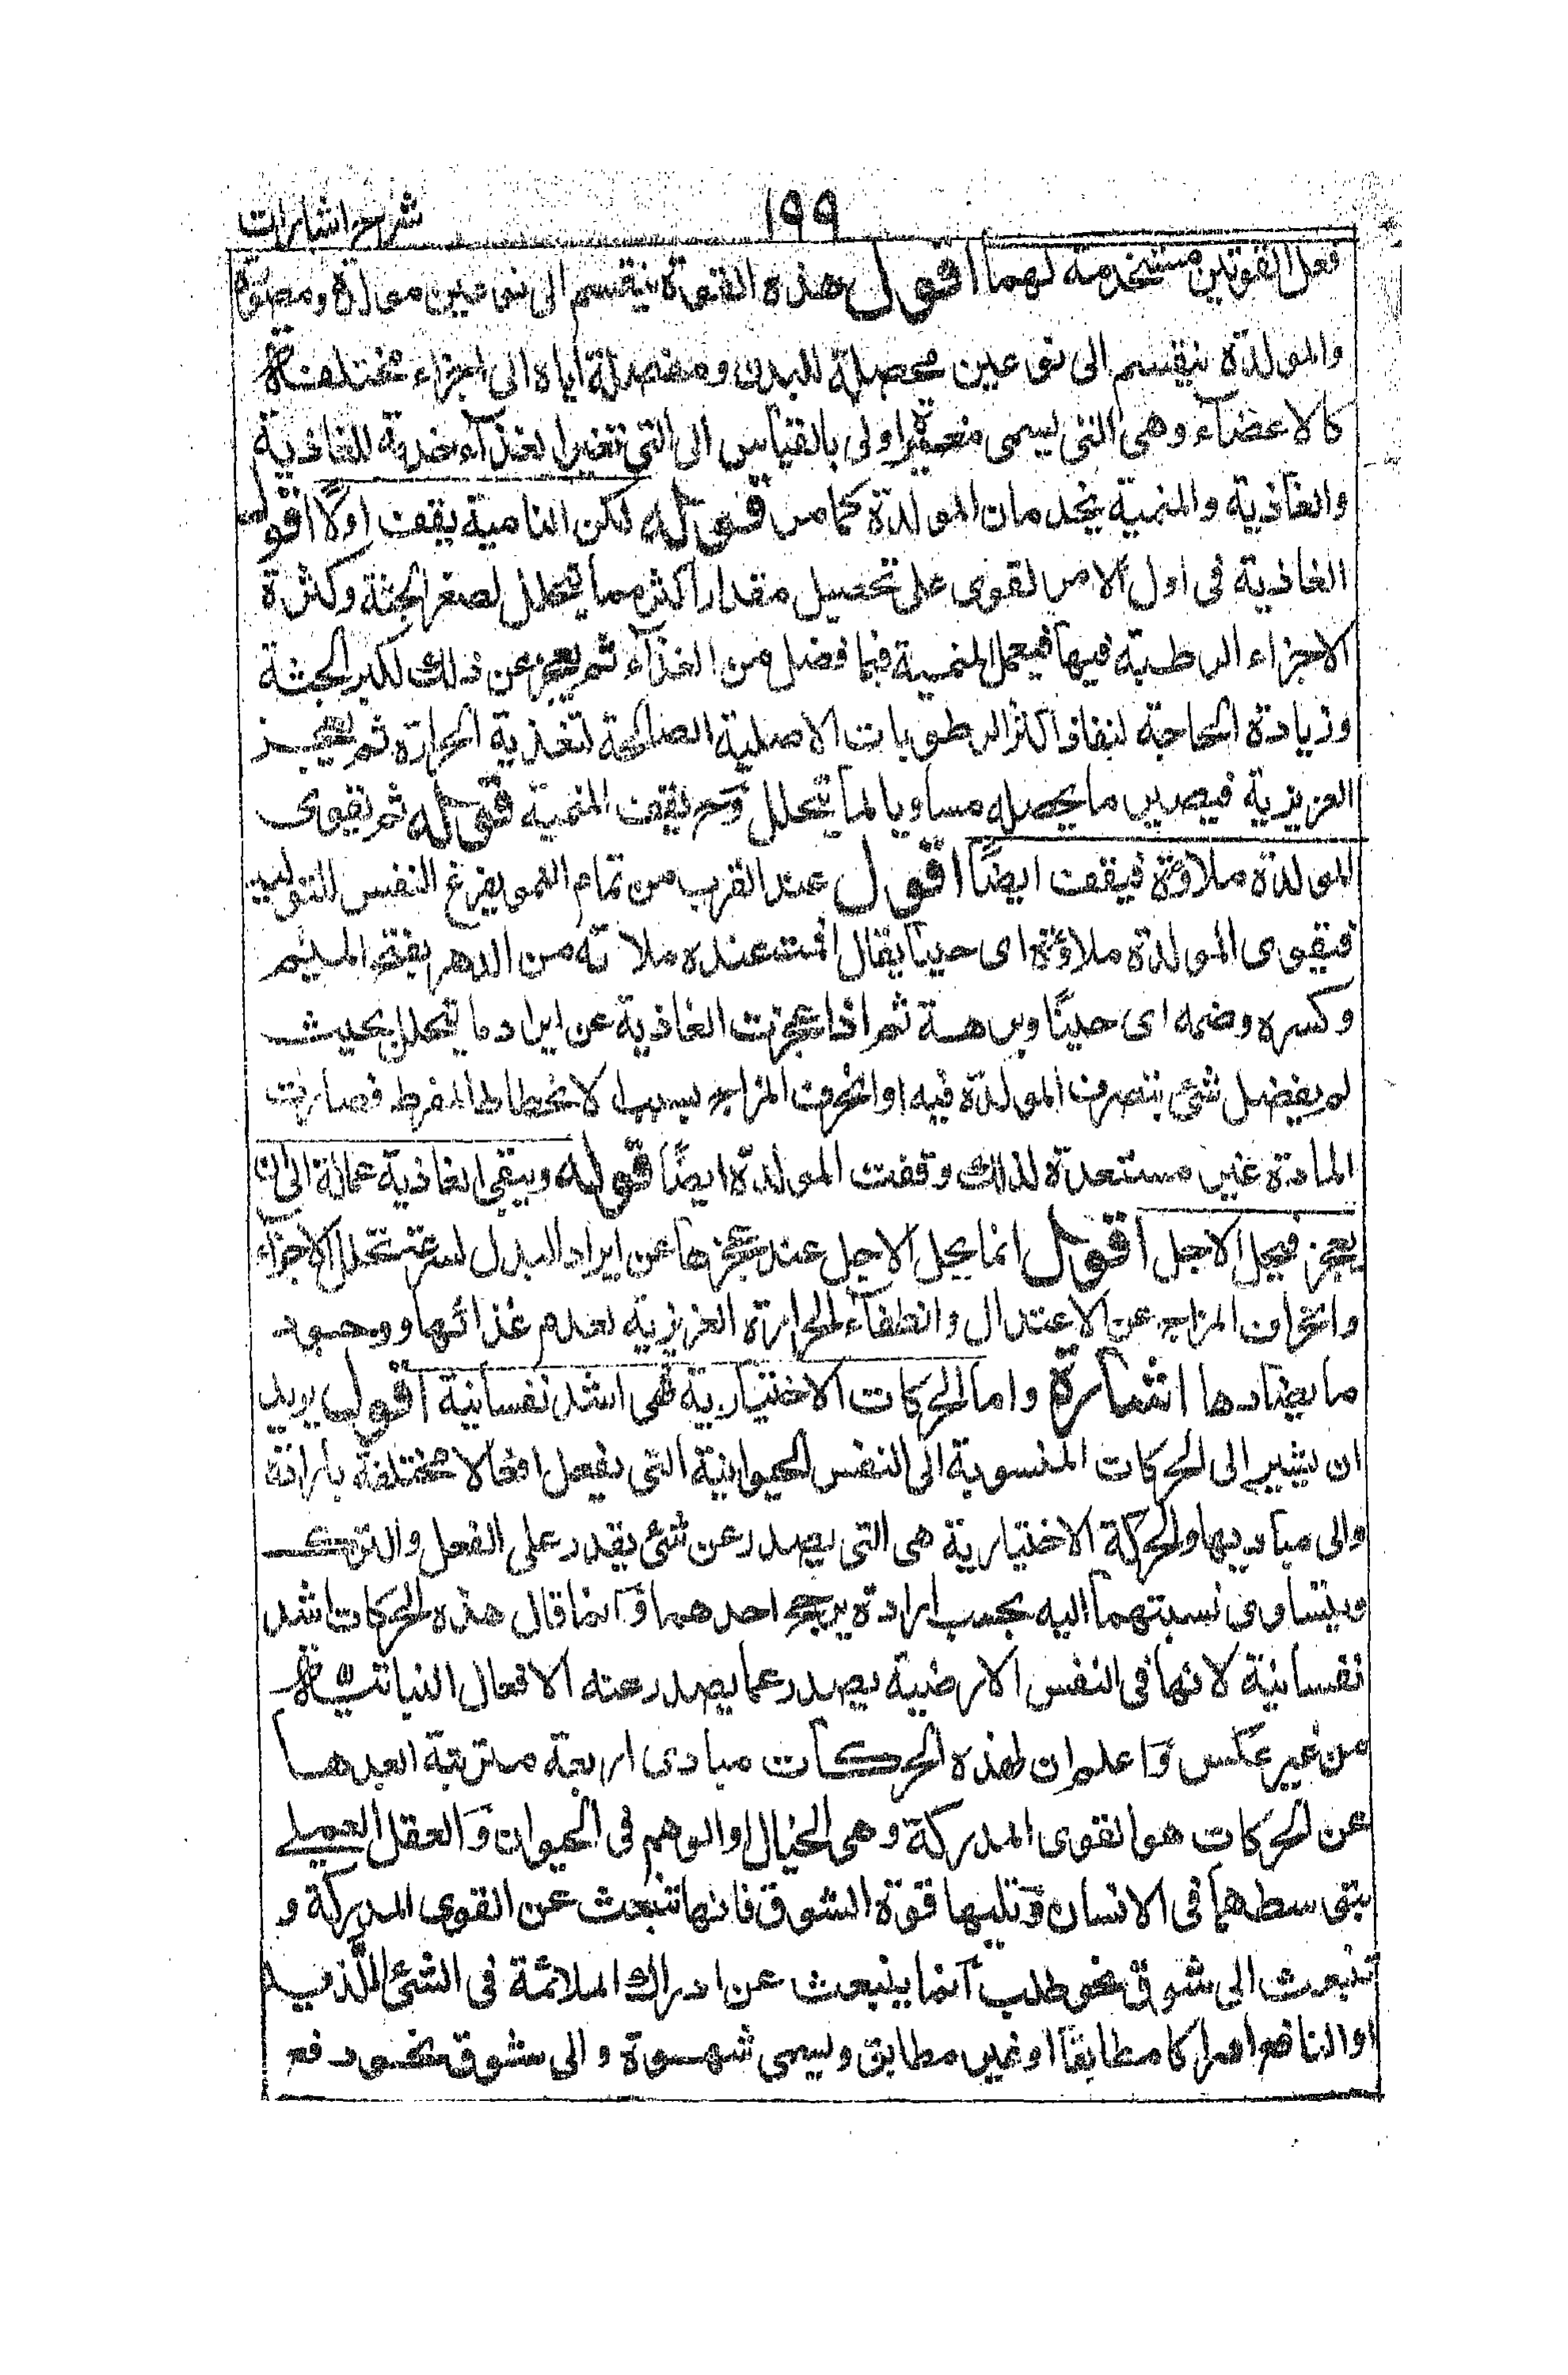 ١٩٩
شرح اشارات
فعل القوتين مستخدمة لهما اقول هذه القوة ينقسم الى نوعين مولدة ومصورة
والمولدة ينقسم الى نوعين محصلة للبدن ومفصلة اياه الى اجزاء مختلفة
كالاعضآء وهى التى يسمى مغيرة اولى بالقياس الى التى تغير الغذآء خدمة للغاذية
والغاذية والمنمية يخدمان المولدة كما مر قوله لكن النامية يقف اولًا اقول
الغاذية فى اول الامر لقوى على تحصيل مقدار اكثر مما يتحلل لصغر الجثة وكثرة
الاجزاء الرطبة فيها فيعمل المنمية فيما فضل من الغذآء ثم يعجز عن ذلك لكبر الجثة
وزيادة الحاجة لنفاذ اكثر الرطوبات الاصلية الصالحة لتغذية الحرارة ثم يعجز
العزيزية فيصير ما يحصله مساويا لما يتحلل وح يقف المنمية قوله ثم تقوى
المولدة ملاوة فيقف ايضًا اقول عند القرب من تمام النمو يفرغ النفس للتوليد
فيقوى المولدة ملاوة اى حينا يقال اقمت عنده ملاوة من الدهر بفتح الميم
وكسره وضمه اى حينًا وبرهة ثم اذا عجزت الغاذية عن ايراد ما يتحلل بحيث
لم يفضل شئ يتصرف المولدة فيه او انحرف المزاج بسبب الانحطاط المفرط فصارت
المادة غير مستعدة لذلك وقفت المولدة ايضًا قوله ويبقى الغاذية عمالة الى ان
يعجز فيحل الاجل اقول انما يحل الاجل عند عجزها عن ايراد البدل لسرعة تحلل الاجزاء
وانحراف المزاج عن الاعتدال وانطفآء الحرارة العزيزية لعدم غذائها ووجود
ما يضادها اشارة واما الحركات الاختيارية فهى اشد نفسانية اقول يريد
ان يشير الى الحركات المنسوبة الى النفس الحيوانية التى يفعل افعالا مختلفة بارادة
والى مباديها والحركة الاختيارية هى التى يصدر عن شئ يقدر على الفعل والترك
ويتساوى نسبتهما اليه بحسب ارادة يرجح احدهما وانما قال هذه الحركات اشد
نفسانية لانها فى النفس الارضية يصدر عما يصدر عنه الافعال النباتية
من غير عكس واعلم ان لهذه الحركات مبادى اربعة مترتبة ابعدها
عن الحركات هو القوى المدركة وهى الخيال او الوهم فى الحيوان والعقل العملى
بتوسطهما فى الانسان وتليها قوة الشوق فانها تنبعث عن القوى المدركة و
تنبعث الى شوق نحو طلب انما ينبعث عن ادراك الملائمة فى الشئ اللذيذ
او النافع ادراكا مطابقًا او غير مطابق ويسمى شهوة والى شوق نحو دفع